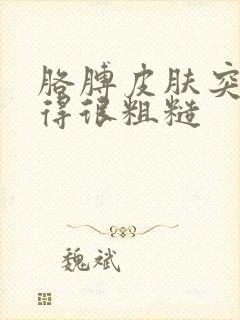 胳膊皮肤突
得很粗糙
魏斌